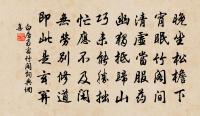 晚坐松檐下
宵眠竹閣間
清虛當服藥
幽獨抵歸山
巧未能勝拙
忙應不及閑
無勞別修道
即此是玄關
白居易宿竹閣